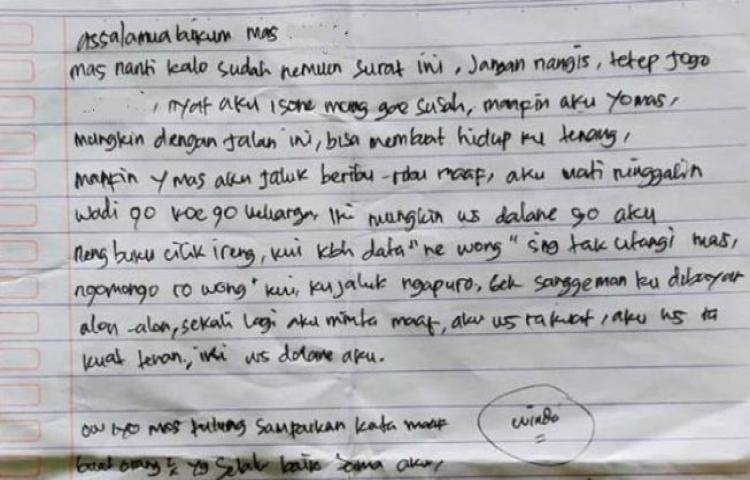 Assalamualaikum mas
mas nanti kalo sudah nemuen surat ini, Jangan nangis, tetep jogo
, nyat aku isone mung gae susah, mangpin aku yo mas,
mungkin dengan jalan ini, bisa membuat hidup ku tenang,
mangpin y mas aku jaluk beribu-ribu maaf, aku mati ninggalin
wadi go koe go keluarga, Iki mungkin us dalane go aku
neng buku cilik ireng, kui kbh data" ne wong" sng tak utangi mas,
ngomongo ro wong" kui, ku jaluk ngapuro, Gek sanggeman ku dibayar
alon-alon, sekali lagi aku minta maaf, aku us ra kuat, aku us ra
kuat tenan, iki us dalane aku.
ow iyo mas tulung sampaikan kata maaf
buat orang2 yg selalu baik sama aku,